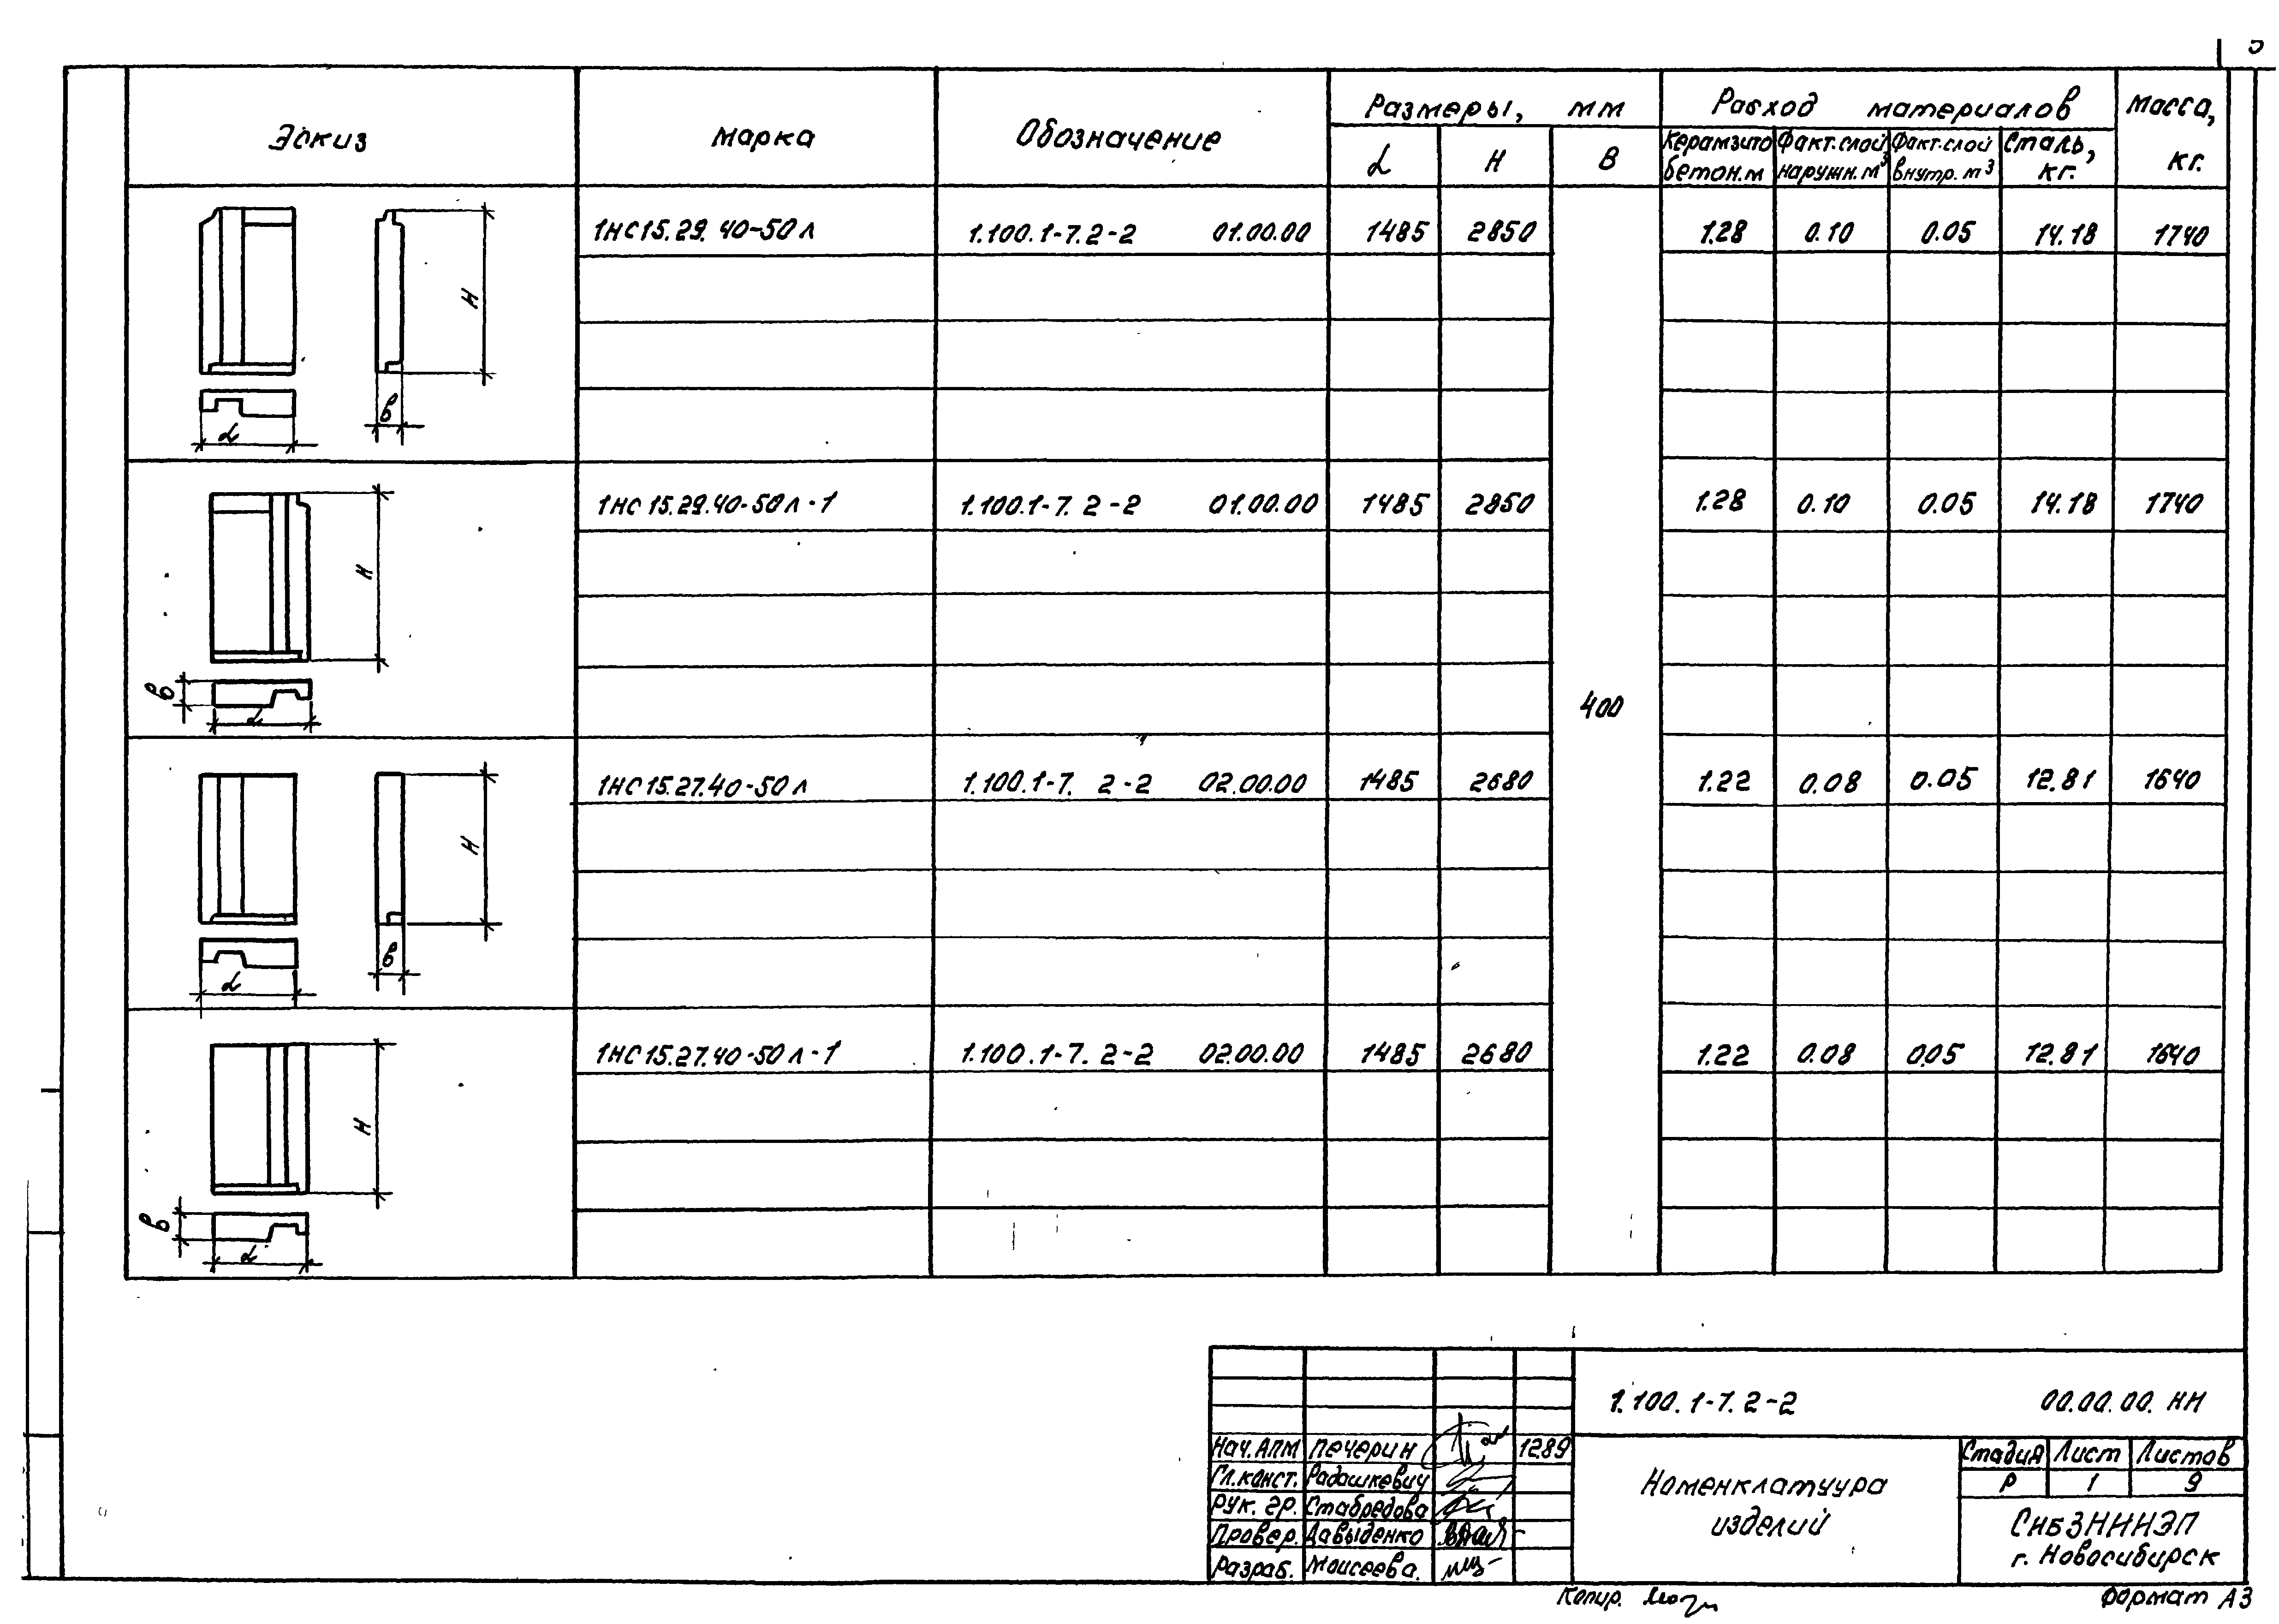 Эскиз Марка Обозначение Размеры, мм Расход материалов Масса, кг.
L H B Керамзито бетон. м Факт. слой наружн. м³ Факт. слой внутр. м³ Сталь, кг.
1НС15.29.40-50л 1.100.1-7.2-2 01.00.00 1485 2850 1.28 0.10 0.05 14.18 1740
H
в
L
1НС15.29.40-50л-1 1.100.1-7.2-2 01.00.00 1485 2850 1.28 0.10 0.05 14.18 1740
H
в
L
400
1НС15.27.40-50л 1.100.1-7. 2-2 02.00.00 1485 2680 1.22 0.08 0.05 12.81 1640
H
в
L
1НС15.27.40-50л-1 1.100.1-7. 2-2 02.00.00 1485 2680 1.22 0.08 005 12.81 1640
H
в
L
1.100.1-7.2-2 00.00.00.НИ
Нач.АПМ Печерин 1289
Гл.конст. Радашкевич
Рук. гр. Стабредова
Провер. Давыденко
Разраб. Моисеева.
Номенклатуура
изделий
Стадия Лист Листов
Р 1 9
СибЗНИИЭП
г. Новосибирск
Копир. Формат А3